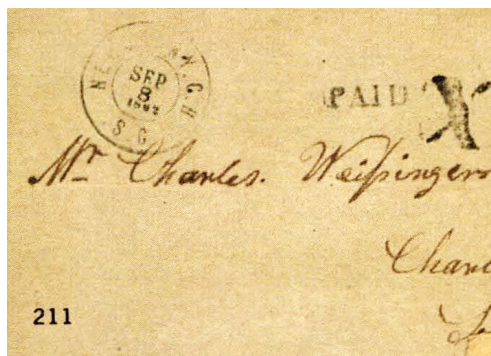 C.H.
SEP
8
S.C.
PAID X
Mr Charles. Weiſsingers
Charl
211